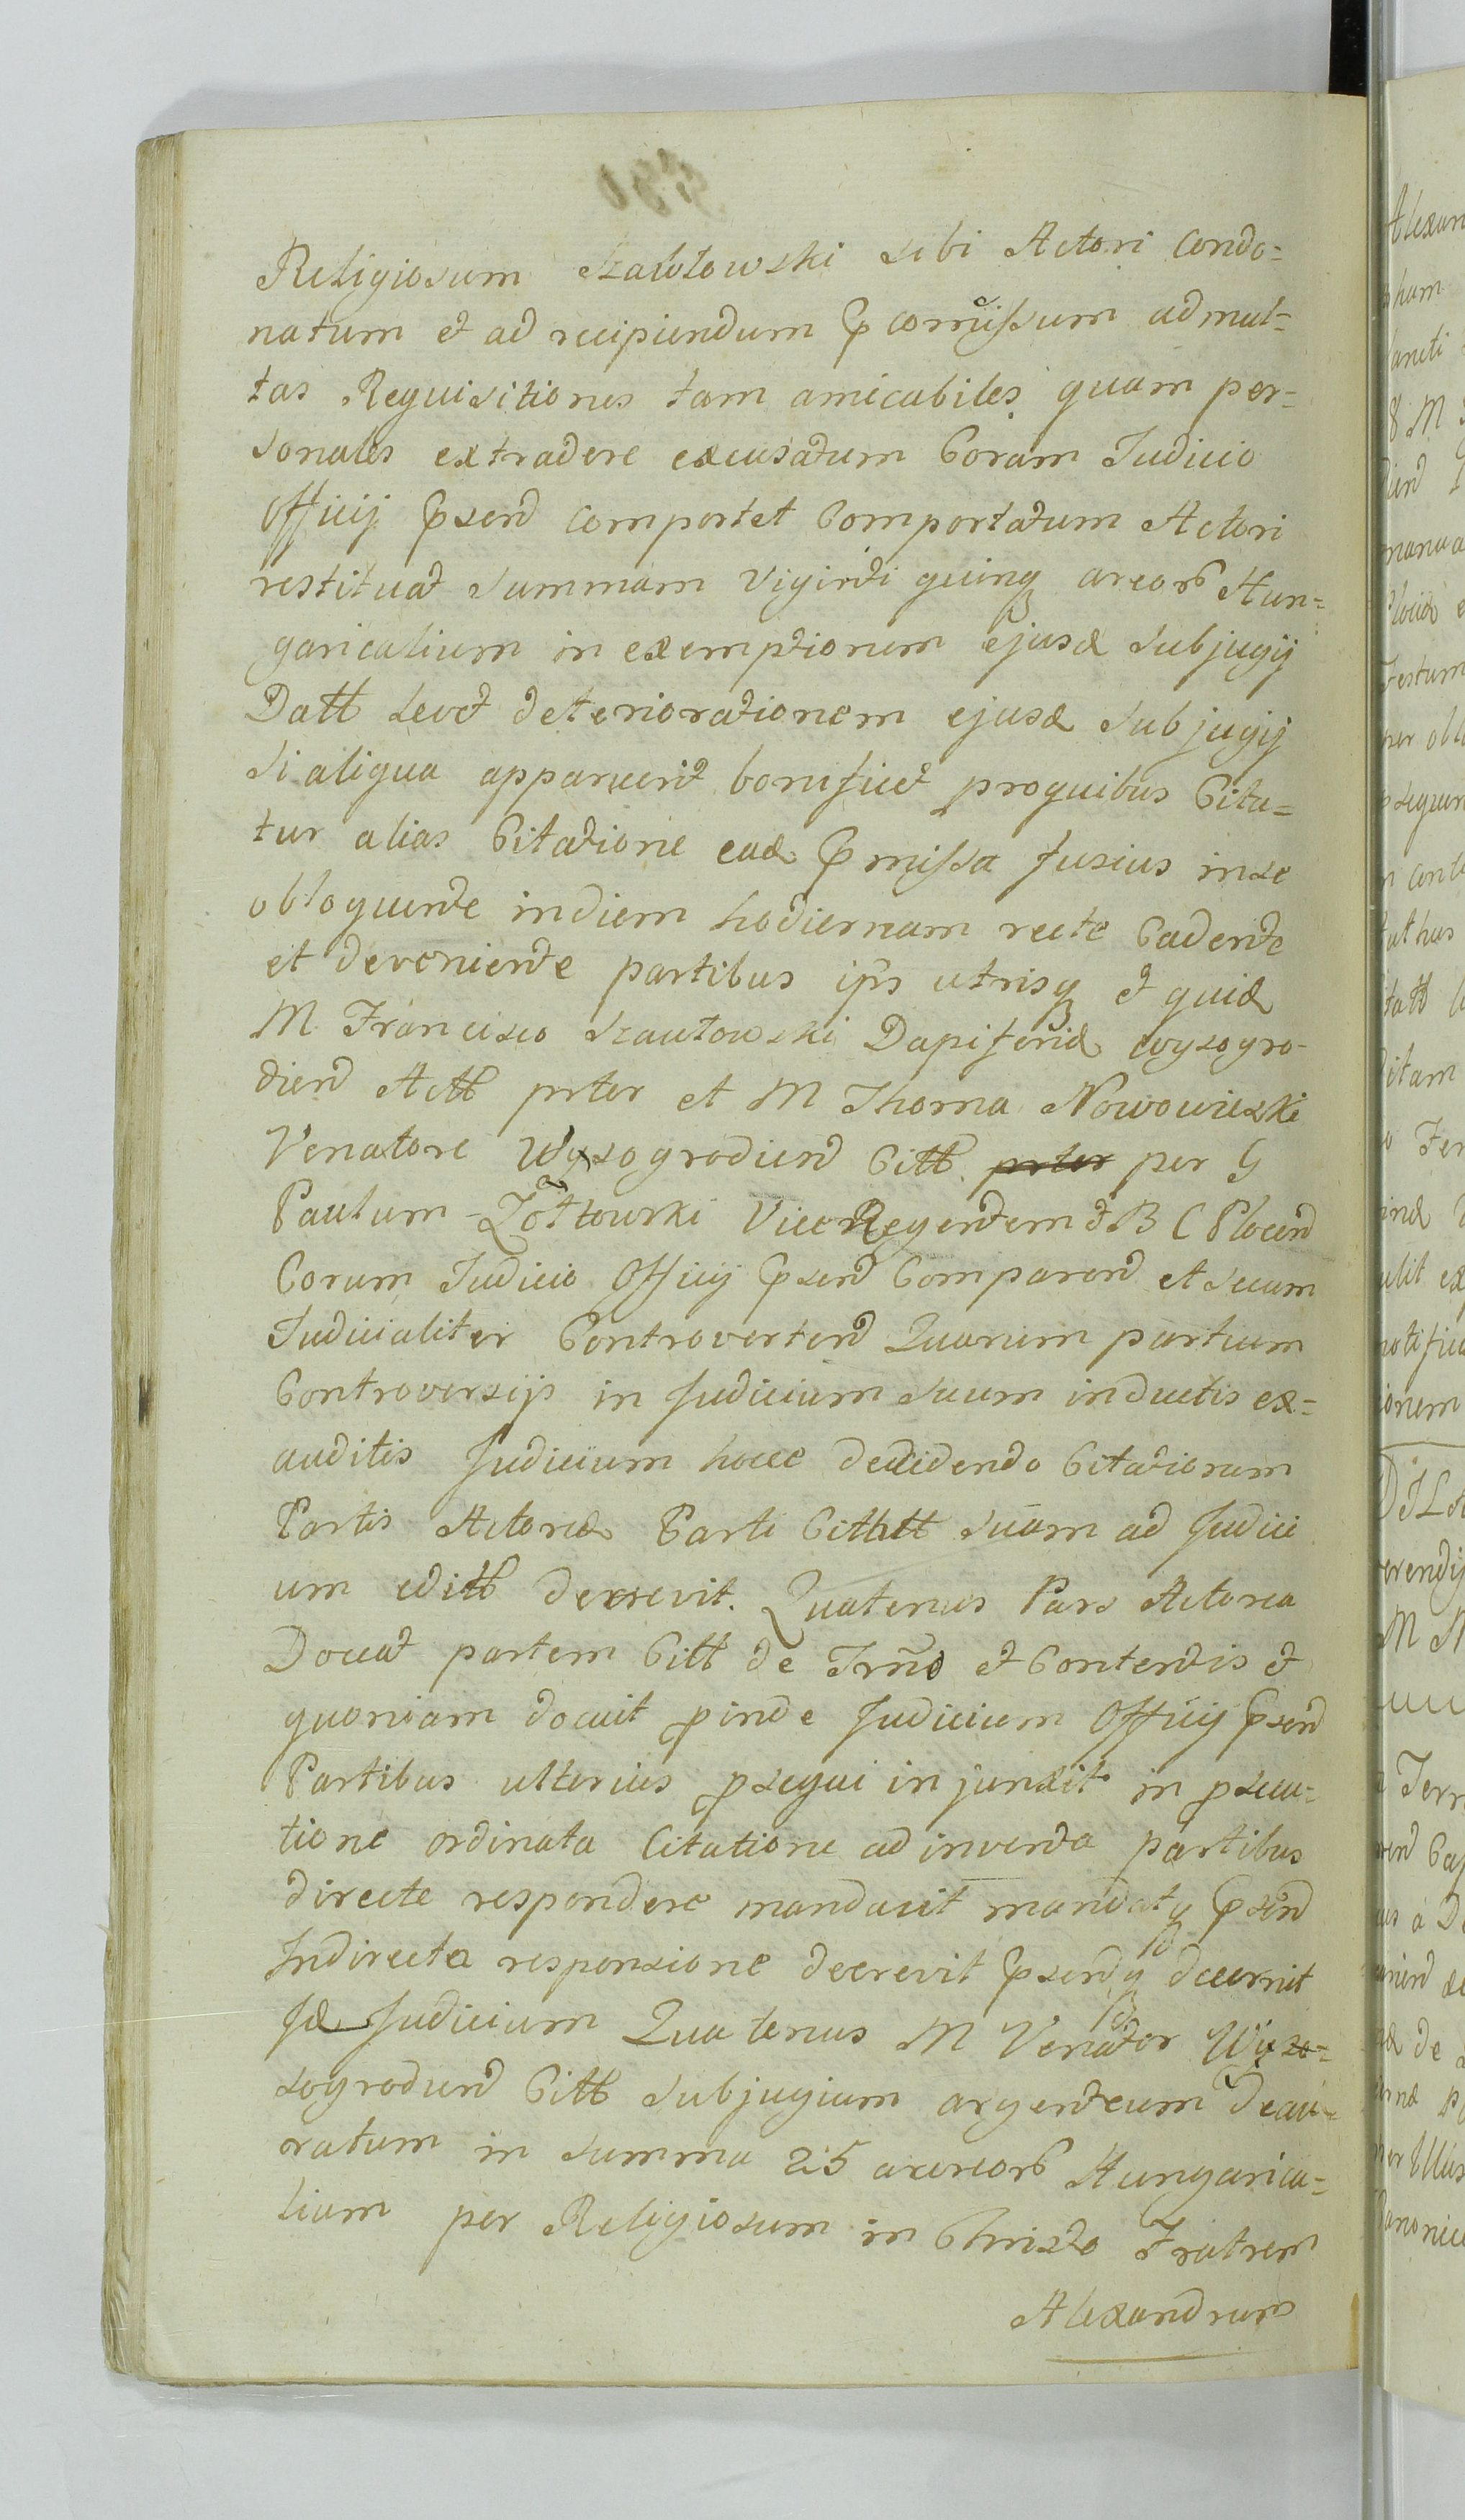 Religiosum Szawłowski sibi Actori Condo=
natum et ad recipiendum p comissum ad mul=
tas Requisitiones tam amicabiles quam per=
sonales extradere excusatum Coram Judicio
Officij psend comportet Comportatum Actori
restituat Summam Viginti quinq areorb Hun=
garicalium in exemptionem ejusd Subjugij
Datt levet deteriorationem ejusd Subjugij
Si aliqua apparuerit bonificet proquibus Cita=
tur alias Citatione ead pmissa fusius in se
obloquente in diem hodiernam recte Cadente
et deveniente partibus ips utrisq et quid
M Francisco Szawłowski Dapiferid Wysogro-
diend Actt prter et M Thoma Nowowieski
Venatore Wyzogrodiend Citt prter per G
Paulum Zołtowski Vice Regentem C B C Plocend
Coram Judicio Officij psend Comparend et secum
Judicialiter Controvertend Quarum partium
Controversijs in Judicium Suum inductis ex=
auditis Judicium hocce decidendo Citationum
Partis Actored Parti Cittt Suam ad Judici
um editt decrevit. Quatenus Pars Actorea
Doceat partem Citt de Trno et Contentis et
quoniam docuit pinde Judicium Officij psend
Partibus ulterius psequi injunxit in psecu=
tione ordinata Citatione ad inventa partibus
directe respondere mandavit mandatq psend
Indirecta responsione decrevit psendq decernit
Jd Judicium Quatenus M Venator Wyzo=
sogrodiend Citt Subjugium argenteum deau=
ratum in Summa 25 aureorb Hungarica=
lium per Religiosum in Christo Fratrem
Alexandrum